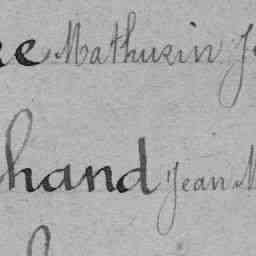 re Mathurin J
hand Jean M